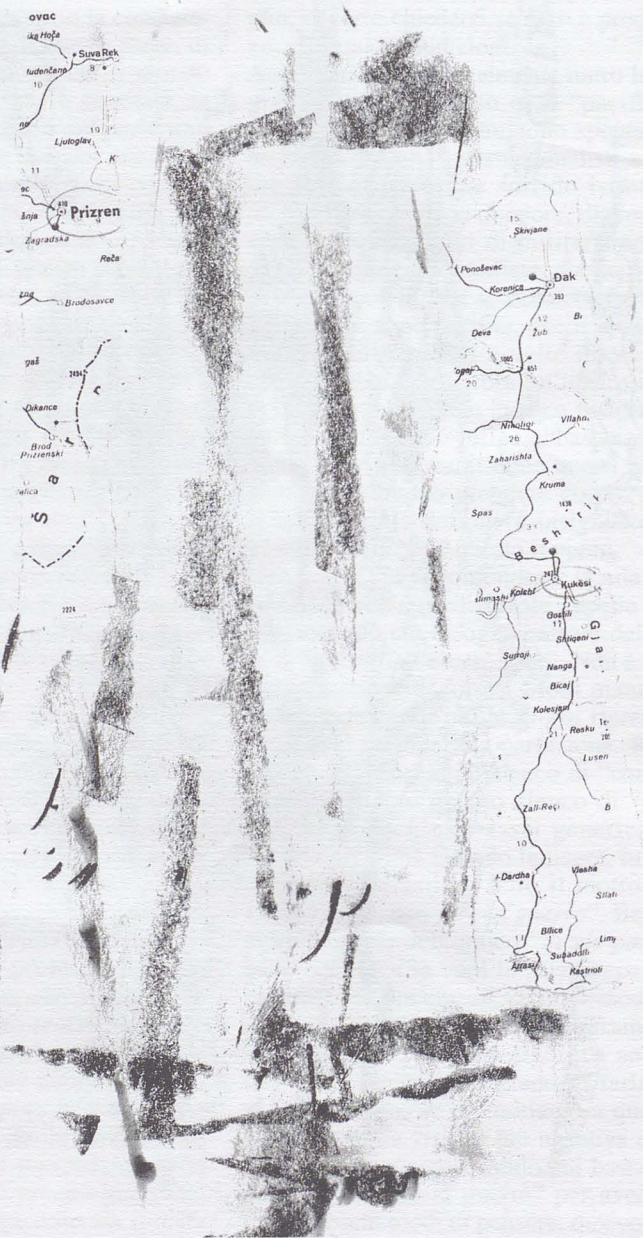 ovac
ika Hoča
Suva Rek
8
10
19
Ljutoglav
K
11
Prizren
šnja
Zagradska
Reča
Brodosavce
gaš
2494
Dikance
Brod
Prizrenski
Š a r
2224
15
Skivjane
Ponoševac
Đak
Korenica
393
12
Deva
Žub
B
1005
651
20
Nikoliqi
Vllahn
26
Zaharishta
Kruma
1438
Spas
33
Beshtrik
Kolshi
Kukësi
Gostili
17
Shtiqeni
Gja
Surroji
Nanga
Bicaj
Kolesjani
Resku
21
Lusen
Zall-Reçi
B
10
Dardha
Vlesha
Sllati
11
Bllice
Limj
Arrasi
Subadolli
Kastrioti